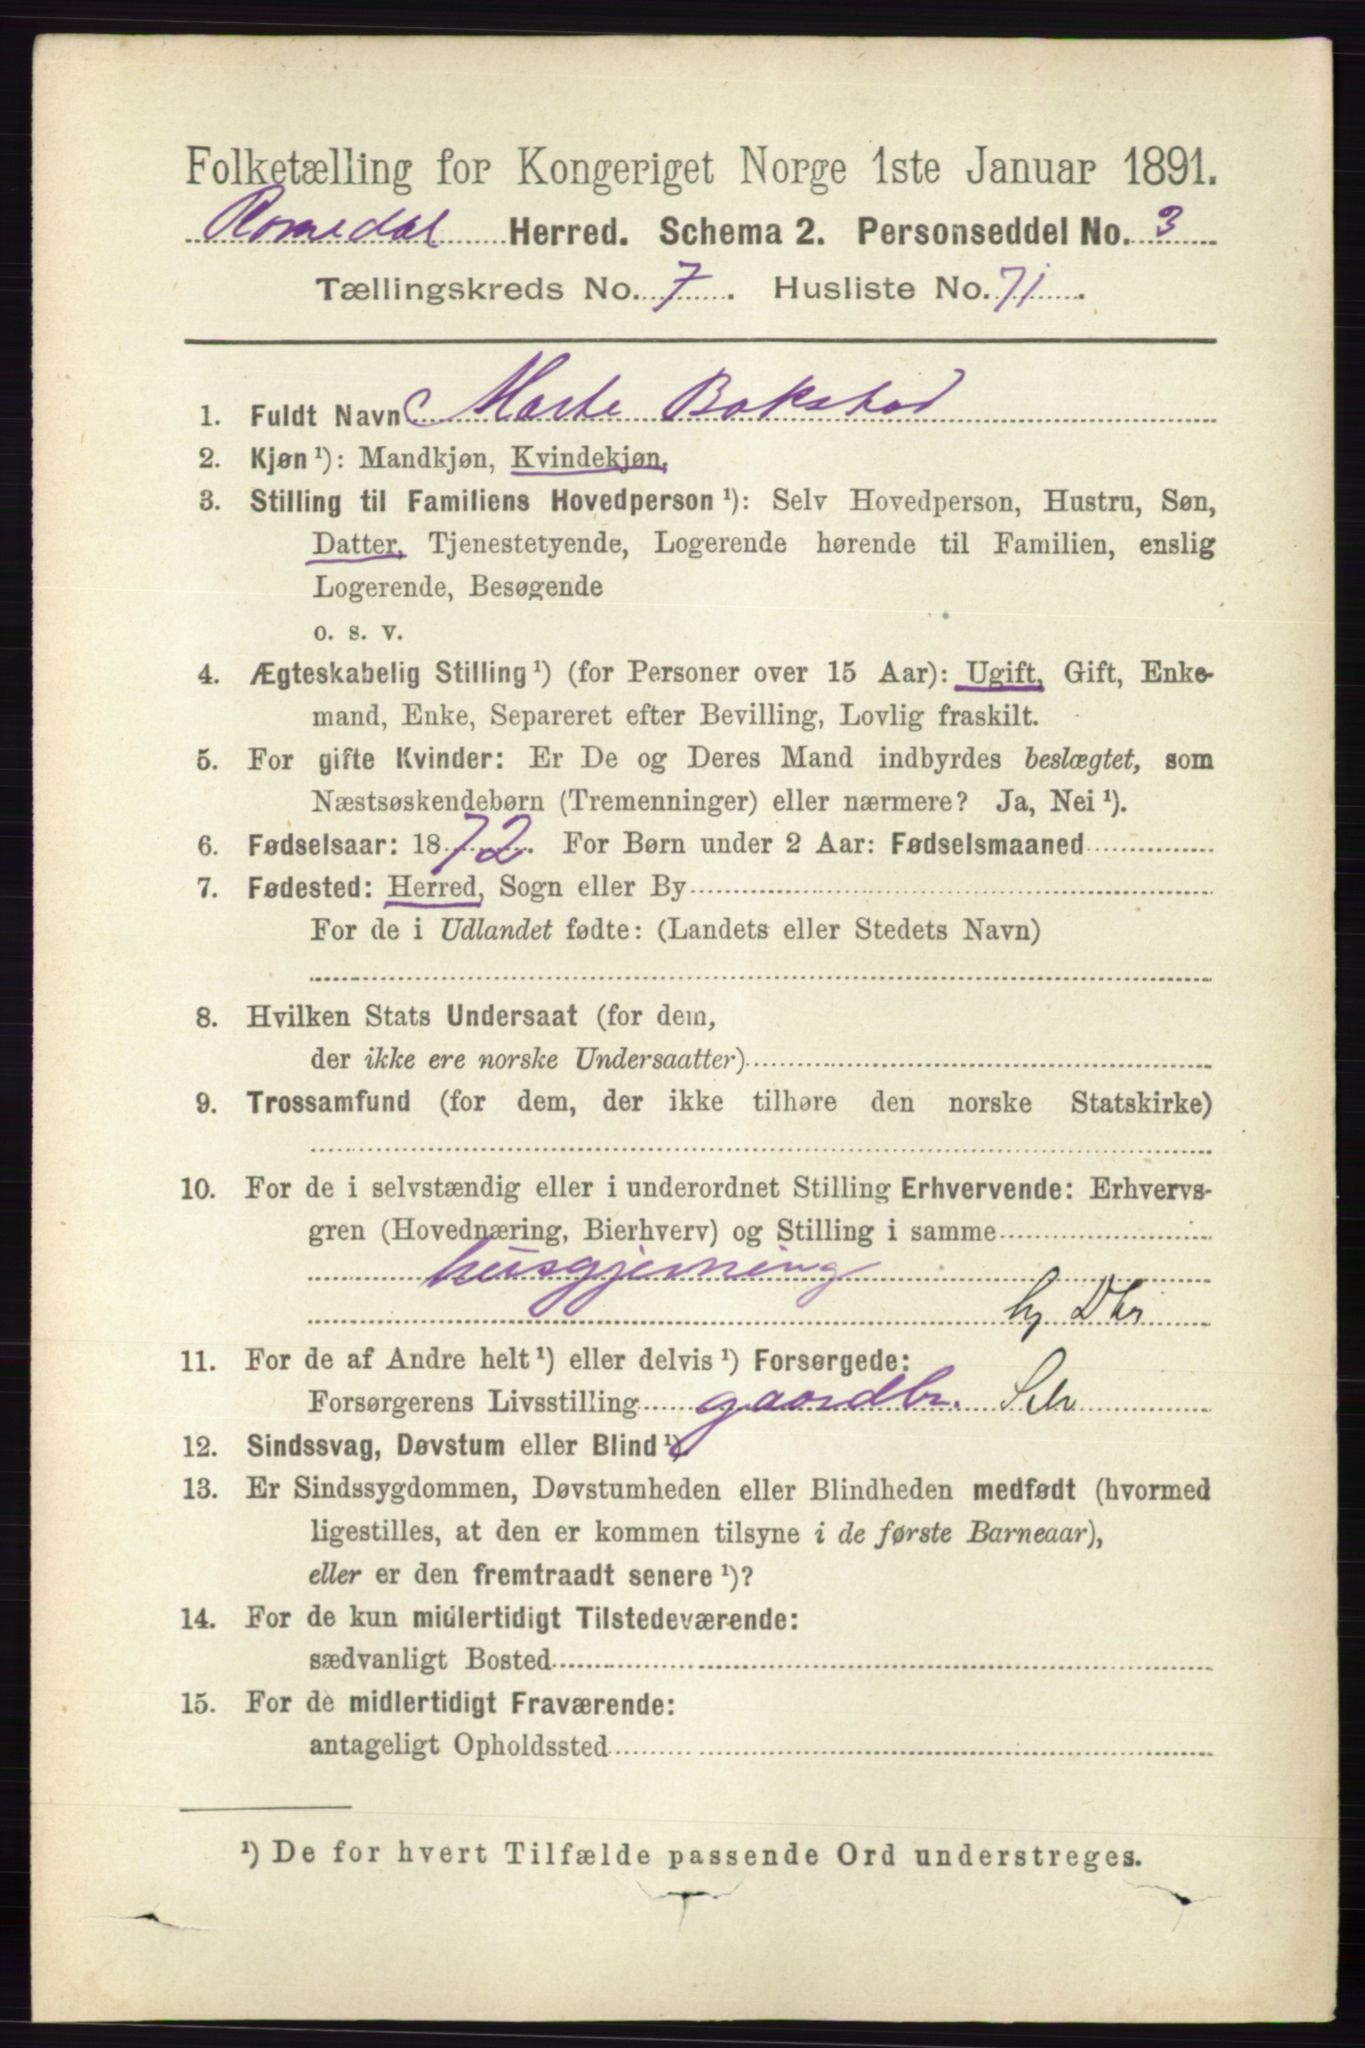 Folketælling for Kongeriget Norge 1ste Januar 1891.
Romedal Herred. Schema 2. Personseddel No. 3
Tællingskreds No. 7. Husliste No. 71.
1. Fuldt Navn Marte Bakstad
2. Kjøn¹): Mandkjøn, Kvindekjøn,
3. Stilling til Familiens Hovedperson¹): Selv Hovedperson, Hustru, Søn,
Datter, Tjenestetyende, Logerende hørende til Familien, enslig
Logerende, Besøgende
o. s. v.
4. Ægteskabelig Stilling¹) (for Personer over 15 Aar): Ugift, Gift, Enke-
mand, Enke, Separeret efter Bevilling, Lovlig fraskilt.
5. For gifte Kvinder: Er De og Deres Mand indbyrdes beslægtet, som
Næstsøskendebørn (Tremenninger) eller nærmere? Ja, Nei¹).
6. Fødselsaar: 1872. For Børn under 2 Aar: Fødselsmaaned
7. Fødested: Herred, Sogn eller By
For de i Udlandet fødte: (Landets eller Stedets Navn)
8. Hvilken Stats Undersaat (for dem,
der ikke ere norske Undersaatter)
9. Trossamfund (for dem, der ikke tilhøre den norske Statskirke)
10. For de i selvstændig eller i underordnet Stilling Erhvervende: Erhvervs-
gren (Hovednæring, Bierhverv) og Stilling i samme
husgjerning
11. For de af Andre helt¹) eller delvis¹) Forsørgede:
Forsørgerens Livsstilling gaardbr. Selv
12. Sindssvag, Døvstum eller Blind¹).
13. Er Sindssygdommen, Døvstumheden eller Blindheden medfødt (hvormed
ligestilles, at den er kommen tilsyne i de første Barneaar),
eller er den fremtraadt senere¹)?
14. For de kun midlertidigt Tilstedeværende:
sædvanligt Bosted
15. For de midlertidigt Fraværende:
antageligt Opholdssted
¹) De for hvert Tilfælde passende Ord understreges.